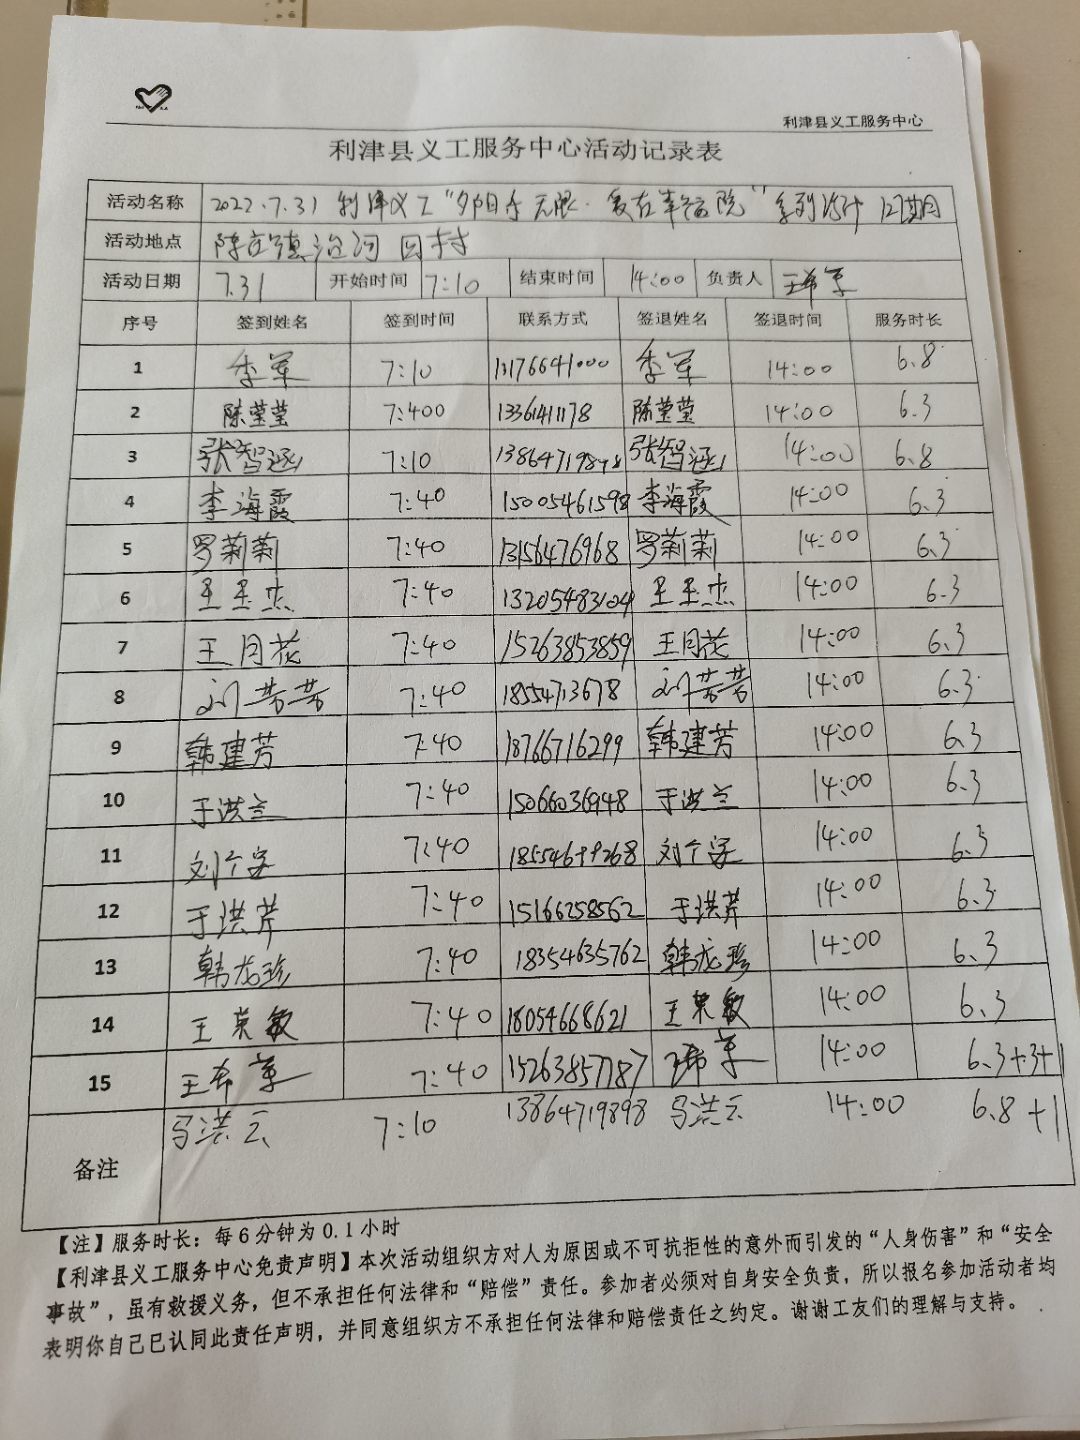 利津县义工服务中心
利津县义工服务中心活动记录表
活动名称 2022.7.31 利津义工“夕阳乐无限·爱在幸福院”系列活动 127期
活动地点 陈庄镇沿河 村
活动日期 7.31 开始时间 7:10 结束时间 14:00 负责人 王希军
序号 签到姓名 签到时间 联系方式 签退姓名 签退时间 服务时长
1 李军 7:10 13176641000 李军 14:00 6.8
2 陈莹莹 7:400 13361411178 陈莹莹 14:00 6.3
3 张智涵 7:10 13864719898 张智涵 14:00 6.8
4 李海霞 7:40 15005461598 李海霞 14:00 6.3
5 罗莉莉 7:40 13156476968 罗莉莉 14:00 6.3
6 王玉杰 7:40 13205483104 王玉杰 14:00 6.3
7 王月花 7:40 15263853859 王月花 14:00 6.3
8 刘芳芳 7:40 18554713678 刘芳芳 14:00 6.3
9 韩建芳 7:40 18766716299 韩建芳 14:00 6.3
10 于洪兰 7:40 15066036948 于洪兰 14:00 6.3
11 刘 7:40 刘 14:00 6.3
12 于洪芹 7:40 15166258562 于洪芹 14:00 6.3
13 韩龙珍 7:40 18354635762 韩龙珍 14:00 6.3
14 王荣敏 7:40 18054668621 王荣敏 14:00 6.3
15 王希军 7:40 15263857787 王希军 14:00 6.3+3+1
备注 马洪云 7:10 13864719898 马洪云 14:00 6.8+1
【注】服务时长：每6分钟为0.1小时
【利津县义工服务中心免责声明】本次活动组织方对人为原因或不可抗拒性的意外而引发的“人身伤害”和“安全
事故”，虽有救援义务，但不承担任何法律和“赔偿”责任。参加者必须对自身安全负责，所以报名参加活动者均
表明你自己已认同此责任声明，并同意组织方不承担任何法律和赔偿责任之约定。谢谢工友们的理解与支持。